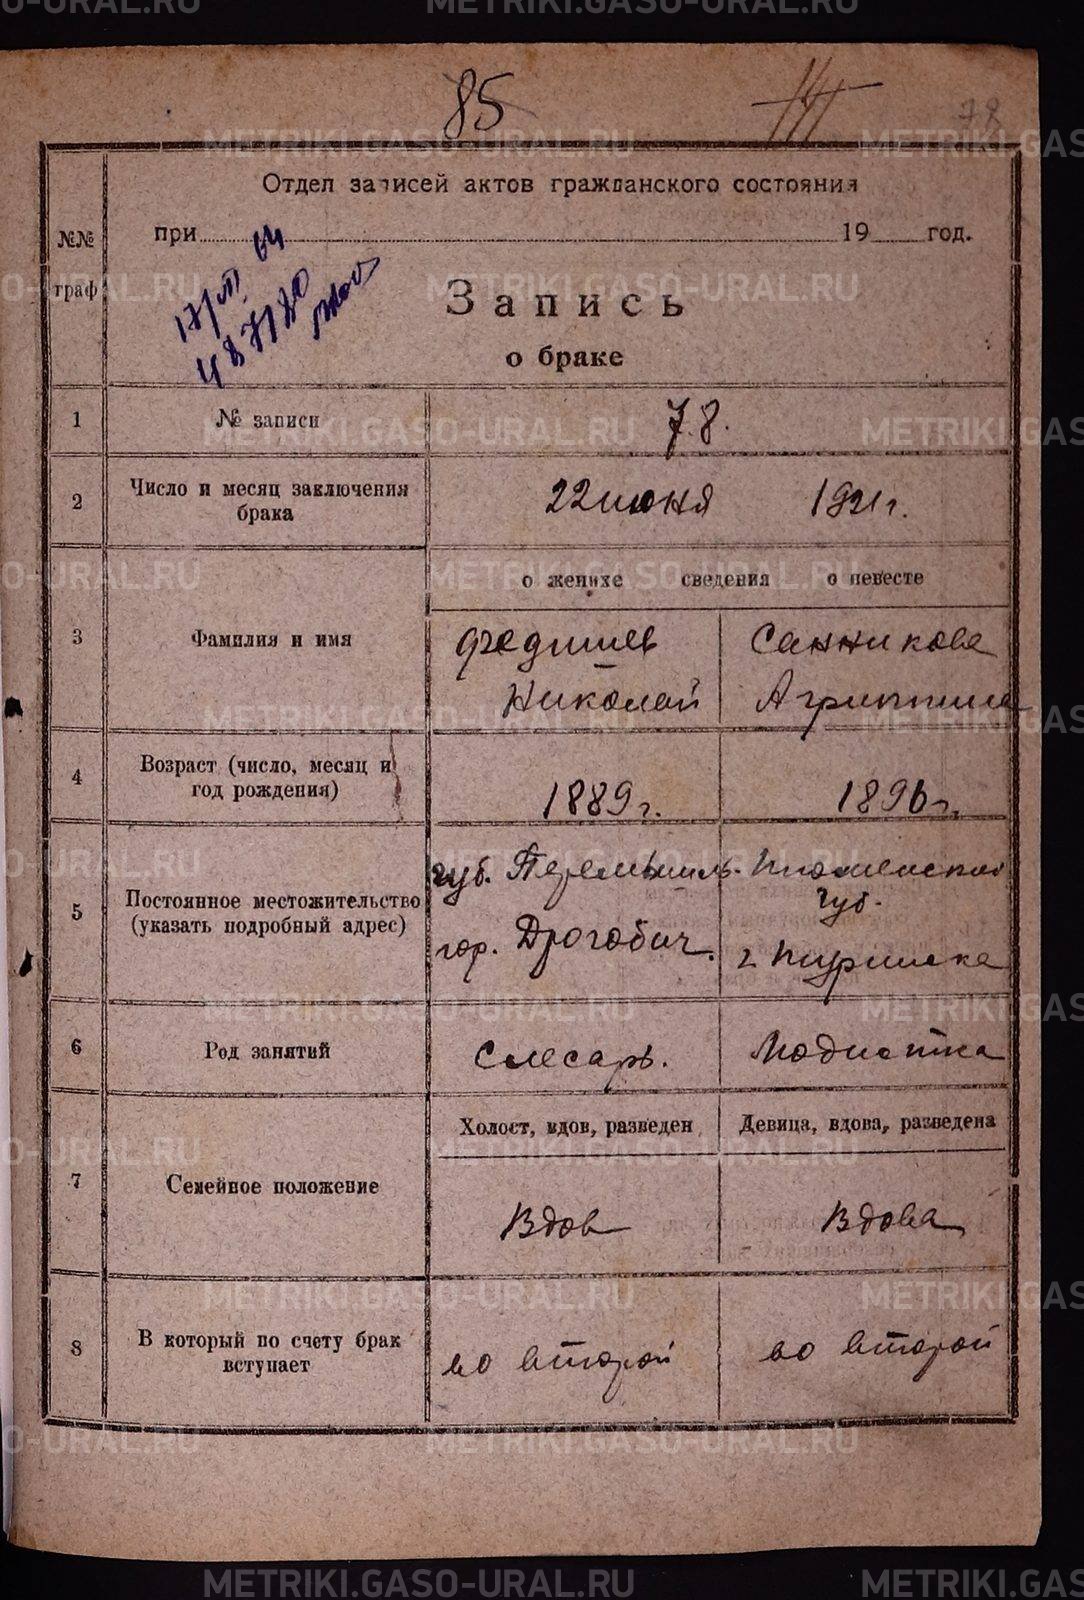 METRIKI.GASO-URAL.RU
85
78
Отдел записей актов гражданского состояния
№№ граф
при 19 год.
17/VII 64
487180
Запись
о браке
1 № записи 78.
2 Число и месяц заключения брака 22 июня 1921 г.
о женихе сведения о невесте
3 Фамилия и имя
Федишев Санникова
Николай Агриппина
4 Возраст (число, месяц и год рождения) 1889 г. 1896 г.
5 Постоянное местожительство (указать подробный адрес)
губ. Перемышль. Тюменской губ.
гор. Дрогобич. г Туринска
6 Род занятий Слесарь. Модистка
Холост, вдов, разведен Девица, вдова, разведена
7 Семейное положение Вдов Вдова
8 В который по счету брак вступает во второй во второй